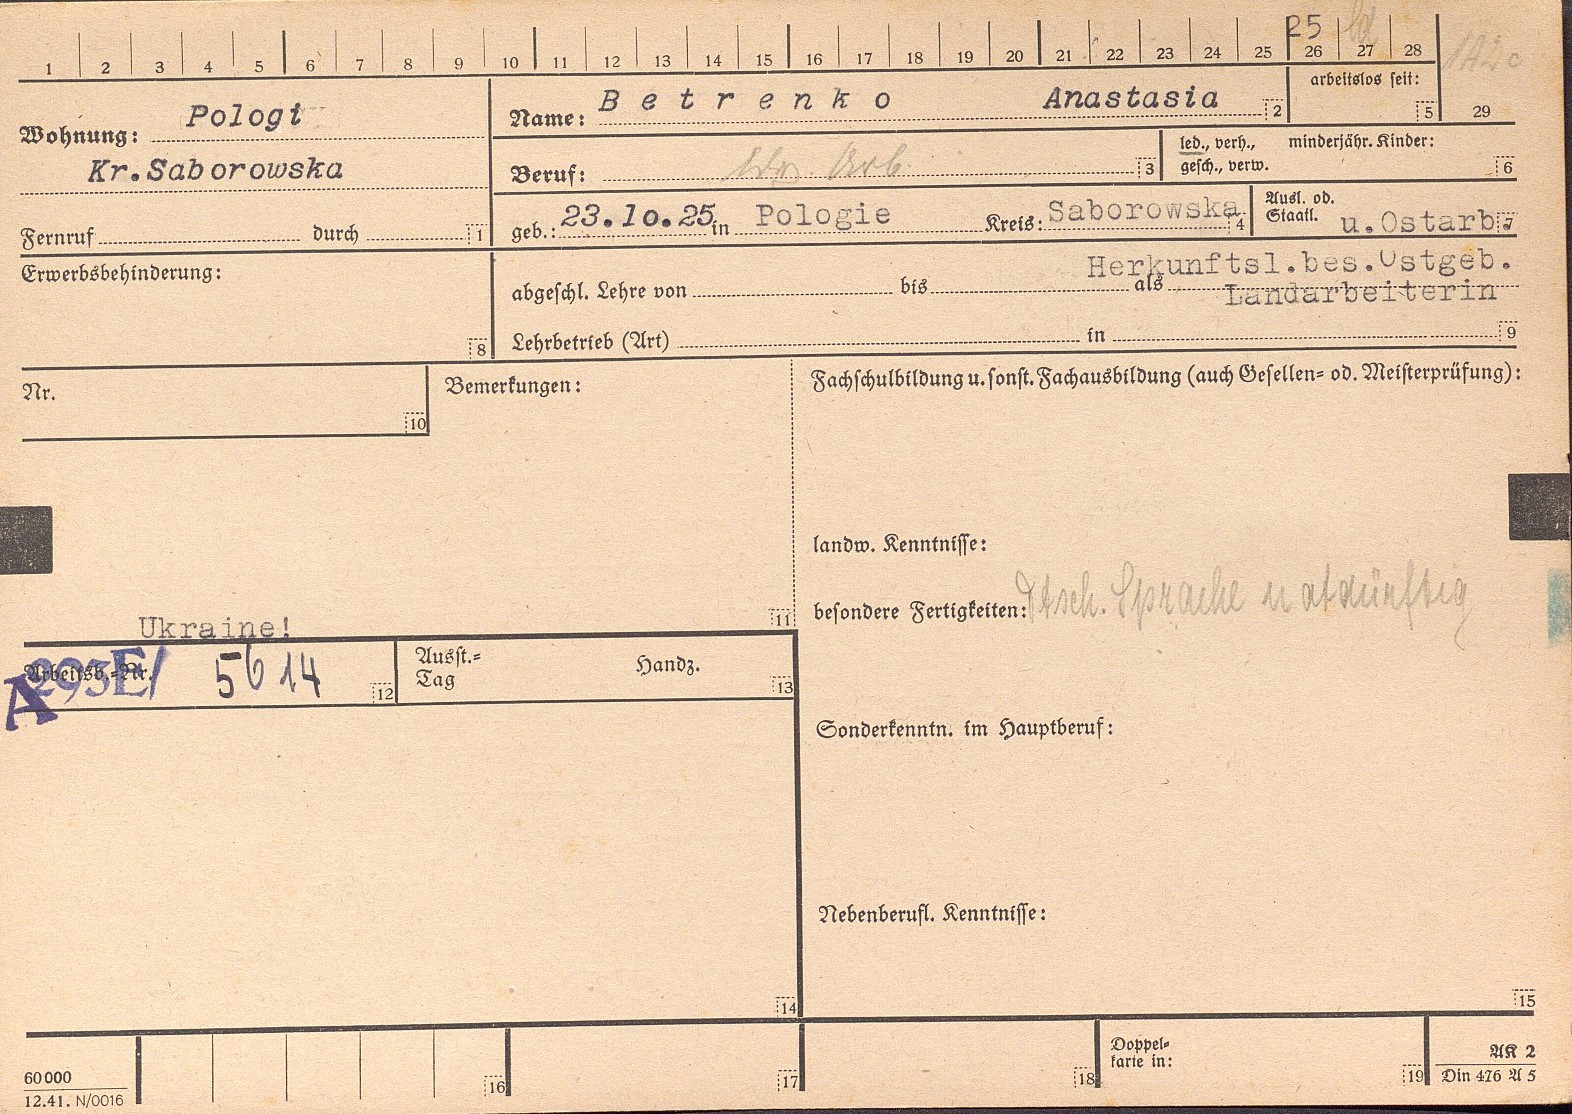 1 2 3 4 5 6 7 8 9 10 11 12 13 14 15 16 17 18 19 20 21 22 23 24 25 26 27 28
25
29
Wohnung: Pologi
Kr.Saborowska
Fernruf durch 1
Name: Betrenko Anastasia 2
arbeitslos seit: 5
Beruf: Arb 3
led., verh., minderjähr. Kinder:
gesch., verw. 6
geb.: 23.10.25 in Pologie Kreis: Saborowska 4
Ausl. od.
Staatl. u.Ostarb. 7
Erwerbsbehinderung: 8
Herkunftsl.bes.Ostgeb.
abgeschl. Lehre von bis als Landarbeiterin
Lehrbetrieb (Art) in 9
Nr. 10
Bemerkungen:
Fachschulbildung u. sonst. Fachausbildung (auch Gesellen= od. Meisterprüfung):
landw. Kenntnisse:
besondere Fertigkeiten: Dtsch. Sprache notdürftig
Ukraine! 11
Arbeitsb.=Nr. A 293E/ 5614 12
Ausst.=
Tag Handz. 13
Sonderkenntn. im Hauptberuf:
Nebenberufl. Kenntnisse:
14
15
60000
12.41. N/0016
16
17
18
Doppel=
karte in: 19
AK 2
Din 476 A 5